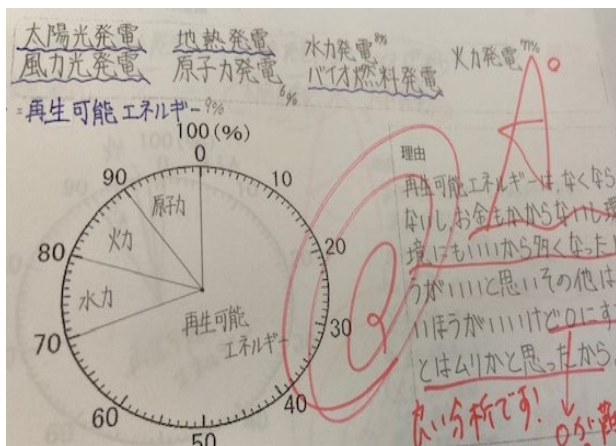 太陽光発電 地熱発電 水力発電 8% 火力発電 77%
風力光発電 原子力発電 6% バイオ燃料発電
=再生可能エネルギー 9%
100(%)
0
10
20
30
40
50
60
70
80
90
原子力
火力
水力
再生可能
エネルギー
理由
再生可能エネルギーは、なくなら
ないし、お金もかからないし環
境にもいいから多くなったほ
うがいいと思いその他は
いほうがいいけど0にす
とはムリかと思ったから。
A°
良い分析です!